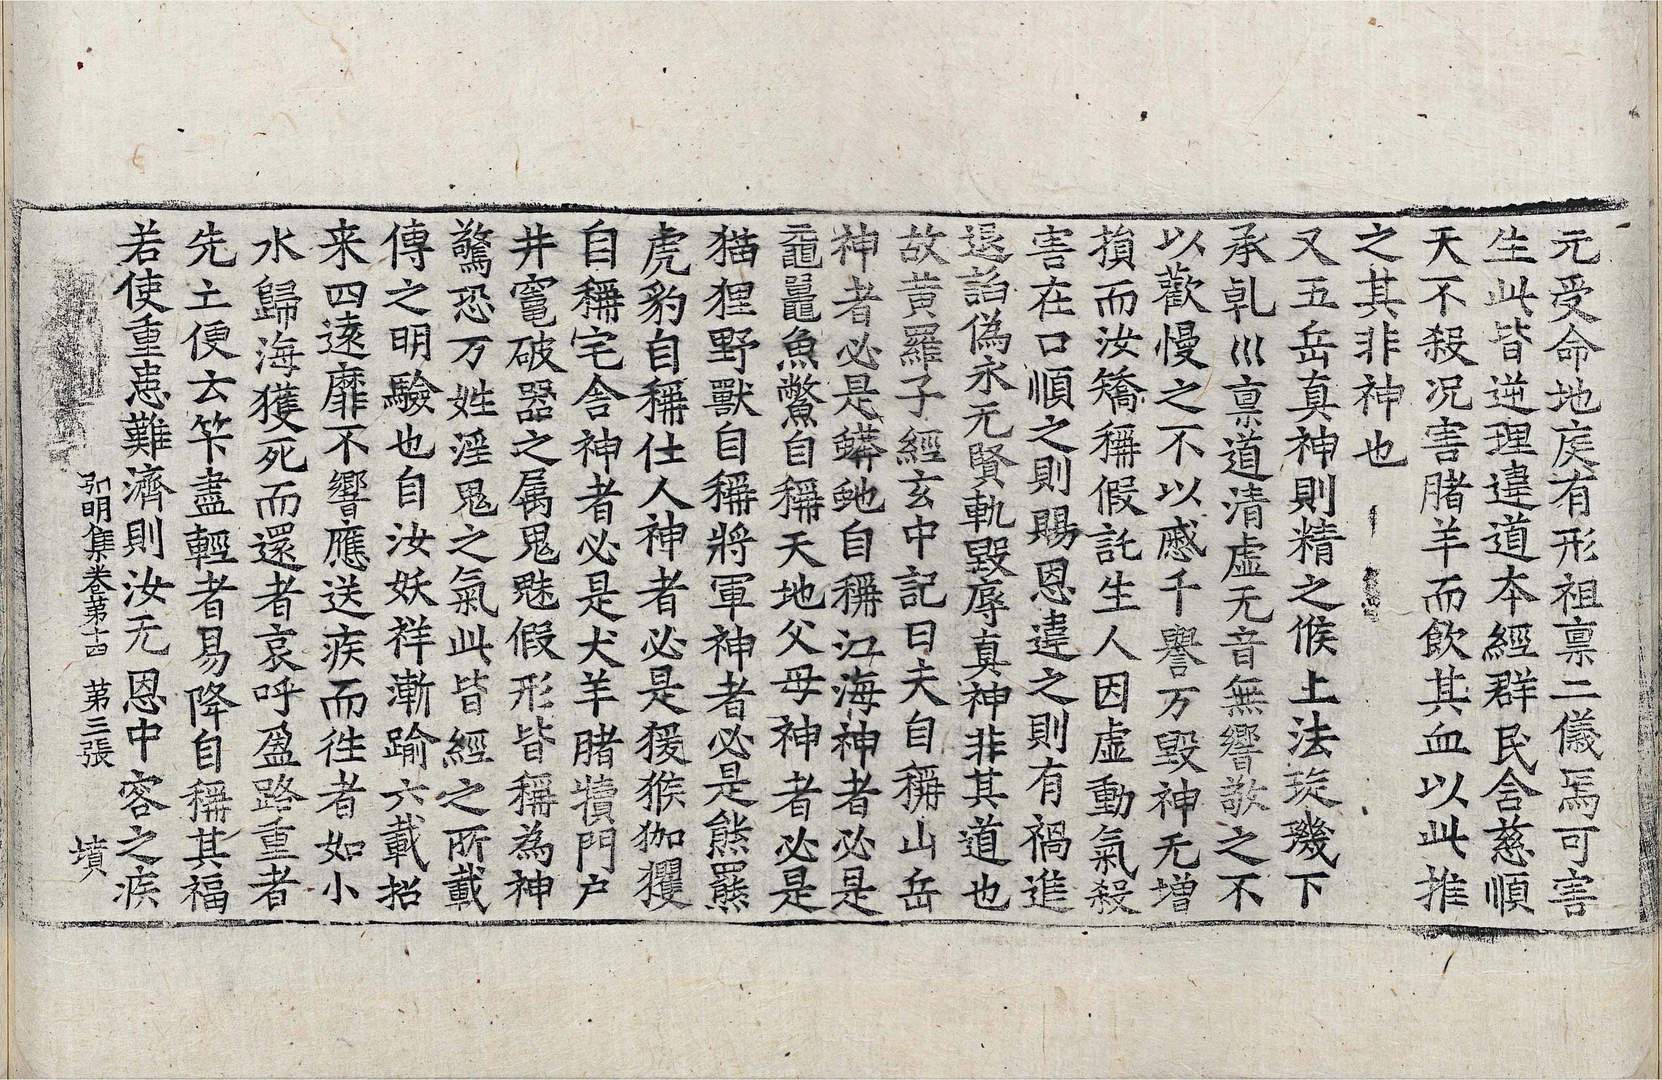 元受命地庡有形祖禀二儀焉可害
生此皆逆理違道本經群民含慈順
天不殺况害賭羊而飲其血以此推
之其非神也
又五岳真神則精之候上法琁璣下
承乹巛禀道清虛无音無響敬之不
以歡慢之不以慼千譽万毀神无增
損而汝矯稱假託生人因虛動氣殺
害在口順之則賜恩違之則有禍進
退諂僞永无賢軌毀辱真神非其道也
故黄羅子經玄中記曰夫自稱山岳
神者必是蟒虵自稱江海神者必是
黿鼉魚鼈自稱天地父母神者必是
猫狸野獸自稱將軍神者必是熊羆
虎豹自稱仕人神者必是猨猴猳玃
自稱宅舍神者必是犬羊賭犢門户
井竈破器之属鬼魅假形皆稱為神
驚恐万姓淫鬼之氣此皆經之所載
傳之明驗也自汝妖祥漸踰六載招
来四遠靡不響應送疾而往者如小
水歸海獲死而還者哀呼盈路重者
先亡便云笇盡輕者易降自稱其福
若使重患難濟則汝无恩中容之疾
弘明集卷第十四 第三張 墳